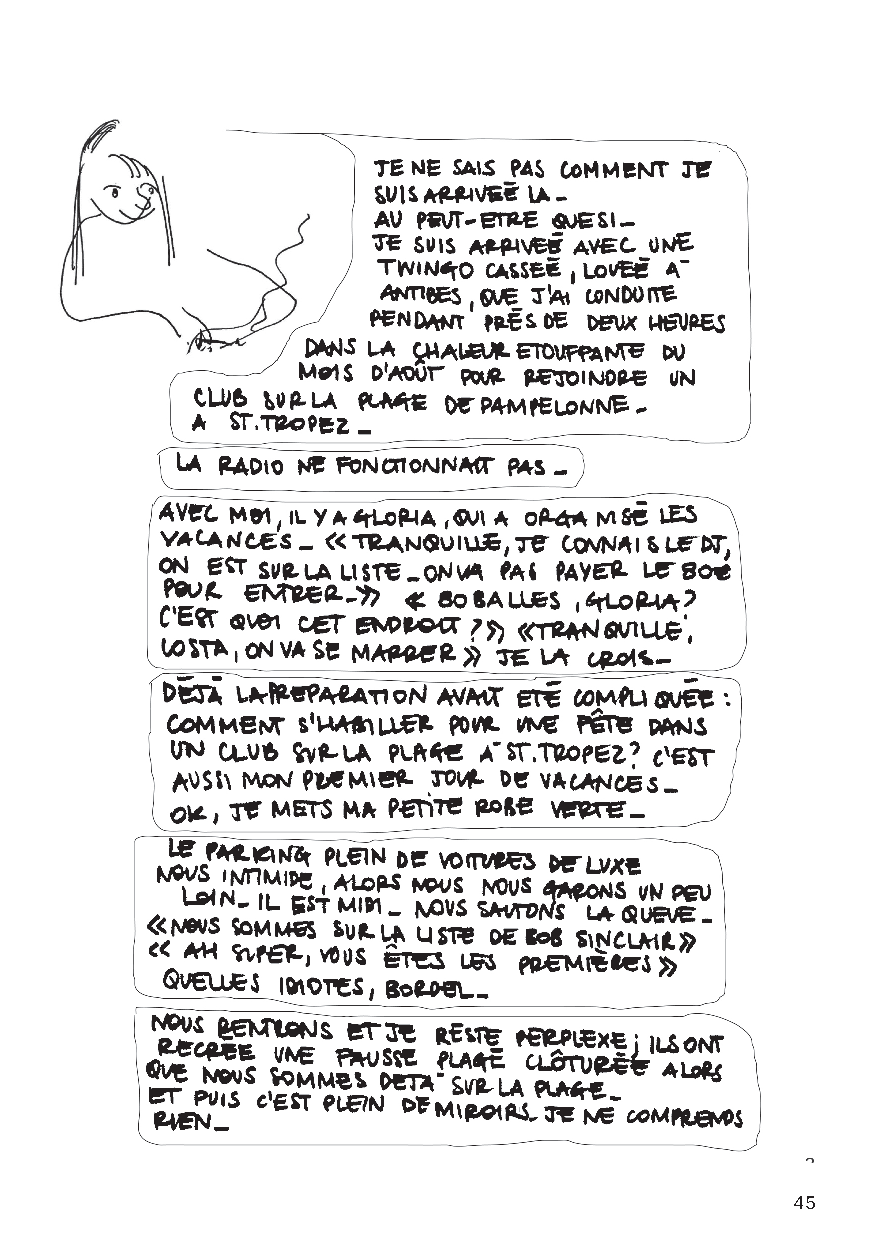 JE NE SAIS PAS COMMENT JE
SUIS ARRIVÉE LA_
AU PEUT-ETRE QUE SI_
JE SUIS ARRIVÉE AVEC UNE
TWINGO CASSEÉ, LOVEÉ A
ANTIBES, QUE J'AI CONDUITE
PENDANT PRÈS DE DEUX HEURES
DANS LA CHALEUR ETOUFFANTE DU
MOIS D'AOÛT POUR REJOINDRE UN
CLUB SUR LA PLAGE DE PAMPELONNE_
A ST.TROPEZ_
LA RADIO NE FONCTIONNAIT PAS_
AVEC MOI, IL Y A GLORIA, QUI A ORGANISÉ LES
VACANCES_ «TRANQUILLE, JE CONNAIS LE DJ,
ON EST SUR LA LISTE_ ON VA PAS PAYER LE 80€
POUR ENTRER_» « 80 BALLES, GLORIA?
C'EST QUOI CET ENDROIT?» «TRANQUILLE,
COSTA, ON VA SE MARRER» JE LA CROIS_
DÉJÀ LA PREPARATION AVAIT ETÉ COMPLIQUÉE:
COMMENT S'HABILLER POUR UNE FÊTE DANS
UN CLUB SUR LA PLAGE A ST.TROPEZ? C'EST
AUSSI MON PREMIER JOUR DE VACANCES_
OK, JE METS MA PETITE ROBE VERTE_
LE PARKING PLEIN DE VOITURES DE LUXE
NOUS INTIMIDE, ALORS NOUS NOUS GARONS UN PEU
LOIN_ IL EST MIDI_ NOUS SAUTONS LA QUEUE_
«NOUS SOMMES SUR LA LISTE DE BOB SINCLAIR»
« AH SUPER, VOUS ÊTES LES PREMIÈRES»
QUELLES IDIOTES, BORDEL_
NOUS RENTRONS ET JE RESTE PERPLEXE; ILS ONT
RECRÉE UNE FAUSSE PLAGE CLÔTURÉE ALORS
QUE NOUS SOMMES DEJA SUR LA PLAGE_
ET PUIS C'EST PLEIN DE MIROIRS_ JE NE COMPRENDS
RIEN_
45